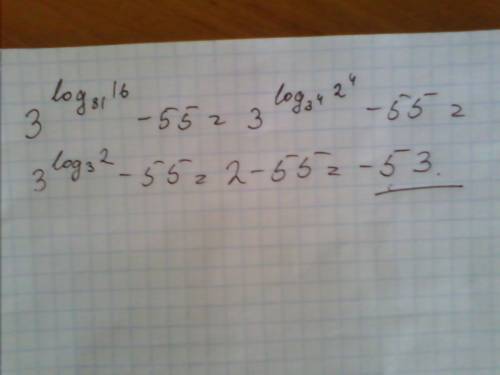 3^{log_{81} 16} - 55 = 3^{log_{3^4} 2^4} - 55 =
3^{log_3 2} - 55 = 2 - 55 = - 53.